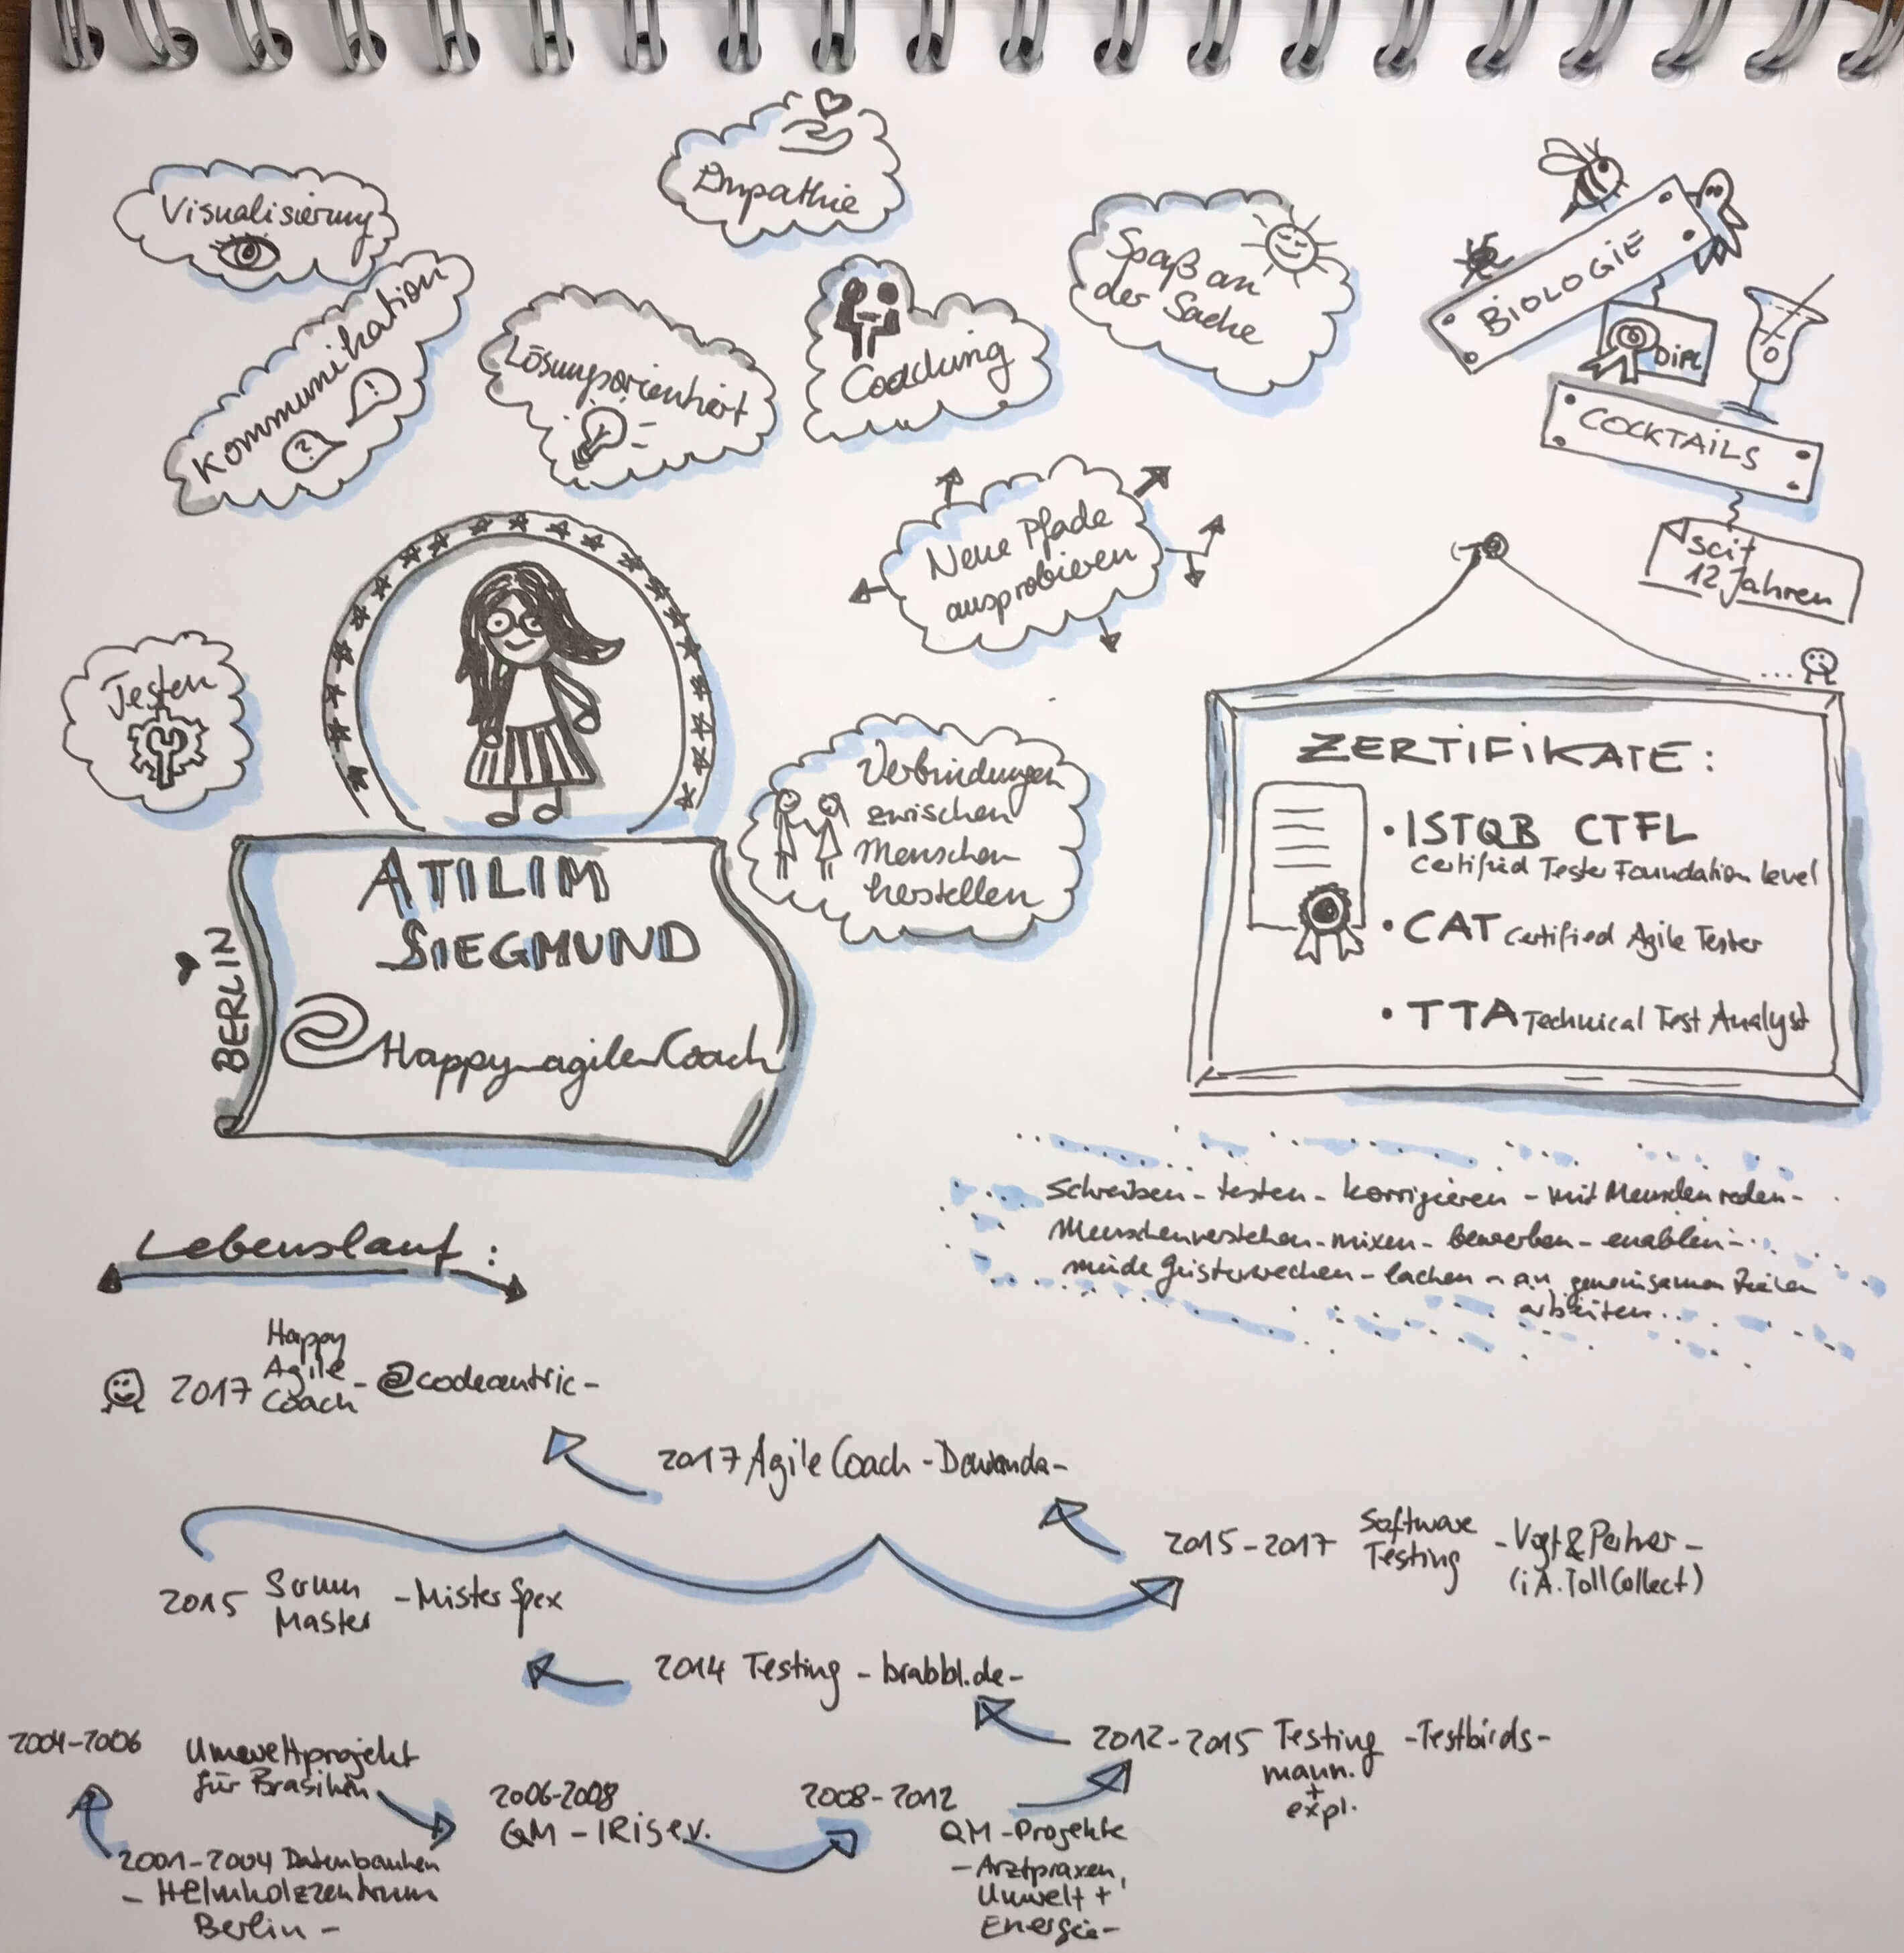 Empathie
Visualisierung
Kommunikation
?
!
Lösungsorientiert
Coaching
Spaß an
der Sache
BIOLOGIE
Dipl
COCKTAILS
seit
12 Jahren
Neue Pfade
ausprobieren
Testen
Verbindungen
zwischen
Menschen
herstellen
ATILIM
SIEGMUND
@Happy_agile_Coach
BERLIN
ZERTIFIKATE:
• ISTQB CTFL
Certified Tester Foundation Level
• CAT Certified Agile Tester
• TTA Technical Test Analyst
Schreiben - testen - korrigieren - mit Menschen reden -
Menschen verstehen - mixen - bewerben - enablen -
müde Geister wecken - lachen - an gemeinsamen Zielen
arbeiten...
Lebenslauf:
2017 Happy
Agile
Coach - @codecentric -
2017 Agile Coach - Dawanda -
2015-2017 Software
Testing - Vogt & Partner -
(i.A. TollCollect)
2015 Scrum
Master - Mister Spex
2014 Testing - brabbl.de -
2012-2015 Testing - Testbirds -
mann.
+
expl.
2004-2006 Umweltprojekt
für Brasilien
2006-2008
QM - IRIS e.V.
2008-2012
QM-Projekte
- Arztpraxen,
Umwelt +
Energie -
2001-2004 Datenbanken
- Helmholzzentrum
Berlin -